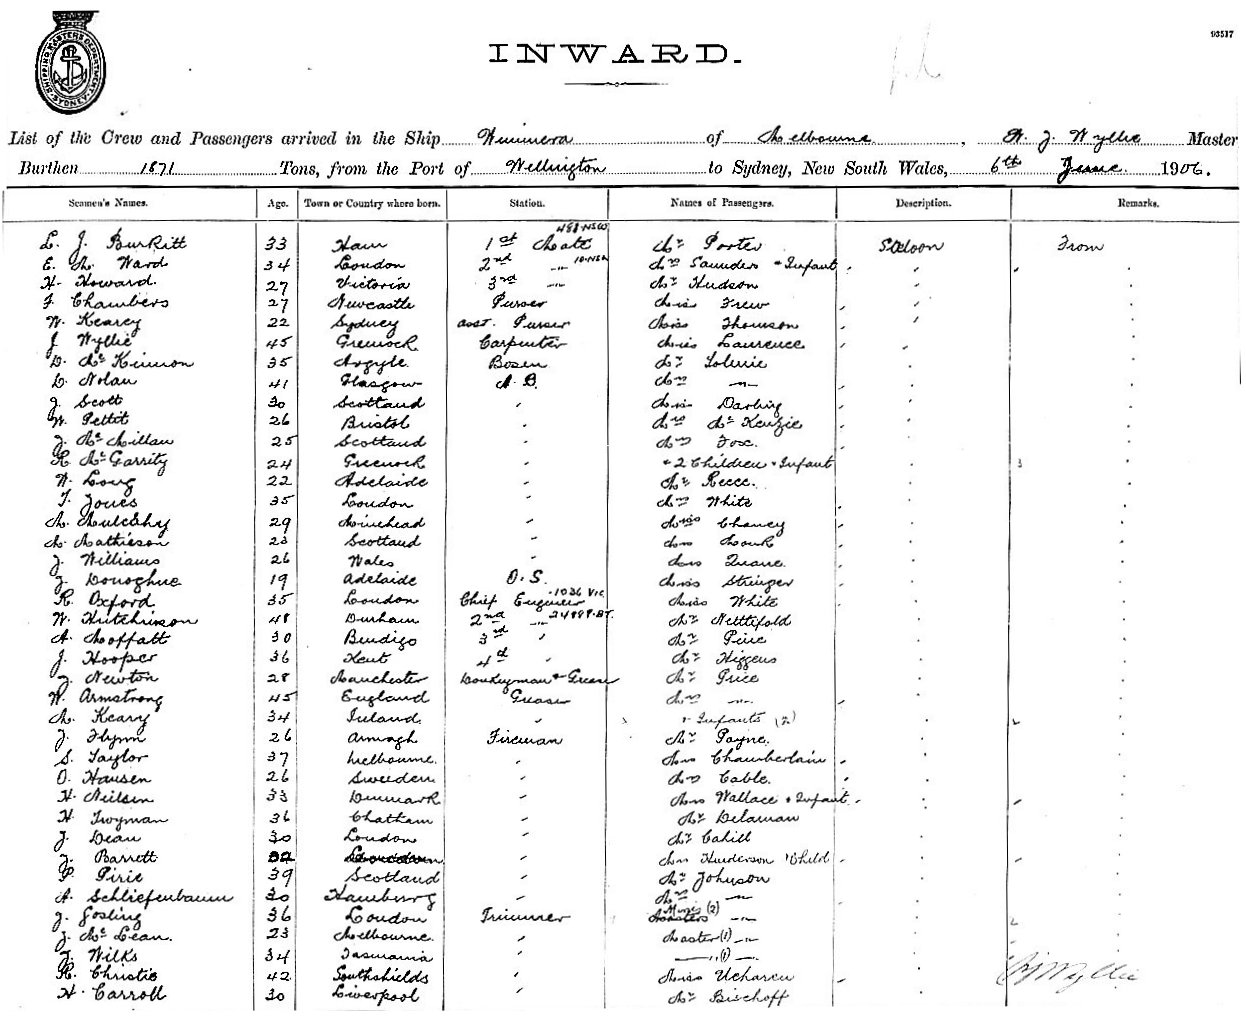 SHIPPING MASTER'S DEPARTMENT SYDNEY
93517
INWARD.
List of the Crew and Passengers arrived in the Ship Wimmera of Melbourne, Master
Burthen 1871 Tons, from the Port of Wellington to Sydney, New South Wales, 6th June 1906.
Seamen's Names. Age. Town or Country where born. Station. Names of Passengers. Description. Remarks.
L. J. Burkitt 33 Ham 1st Mate 481 NSW Mr Porter Saloon From
E. M. Ward 34 London 2nd " 10 NSW Mrs Saunders + Infant
H. Howard. 27 Victoria 3rd " Mr Hudson
F. Chambers 27 Newcastle Purser Miss Frew
W. Kearey 22 Sydney asst. Purser Miss Thomson
J. Wyllie 45 Greenock Carpenter Miss Laurence
D. McKinnon 35 Argyle. Bosen Mr
D. Nolan 41 Glasgow A.B. Mrs "
J. Scott 30 Scotland " Miss Darling
W. Pettit 26 Bristol " Mrs McKenzie
J. McMillan 25 Scotland " Mrs Fox.
R. McGarrity 24 Greenock " + 2 Children + Infant
W. Long 22 Adelaide " Mr Reece.
T. Jones 35 London " Mrs White
M. Mulcahy 29 Minehead " Miss Chaney
M. Mathieson 23 Scotland " Mrs
J. Williams 26 Wales " Mrs
J. Donoghue 19 Adelaide O.S. Miss Stringer
R. Oxford. 35 London Chief Engineer 1036 Vic. Miss White
W. Hutchinson 48 Durham 2nd " Mr Nettlefold
A. Moffatt 30 Bendigo 3rd " Mr Pirie
J. Hooper 36 Kent 4th " Mr Higgens
J. Newton 28 Manchester Donkeyman + Greaser Mr Price
W. Armstrong 45 England Greaser Mrs "
M. Keary 34 Ireland. " + Infants (2)
J. Flynn 26 Armagh Fireman Mr Payne.
S. Taylor 37 Melbourne. " Mrs Chamberlain
O. Hansen 26 Sweden " Mrs Cable.
H. Neilsen 33 Denmark " Mrs Wallace + Infant
H. Twyman 36 Chatham " Mr Delaman
J. Dean 30 London " Mr Cahill
J. Barrett " Mrs Henderson 1 Child
P. Pirie 39 Scotland " Mr Johnson
A. Schliefenbaum 30 Hamburg " Mrs "
J. Gosling 36 London Trimmer Misses (2) "
J. McLean. 23 Melbourne. " Master (1) "
J. Wilks 34 Tasmania " " (1) "
R. Christie 42 Southshields " Miss
H. Carroll 30 Liverpool " Mr Bischoff